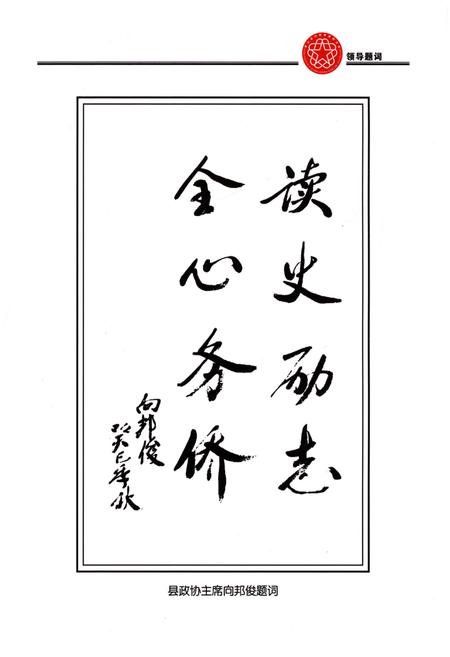 领导题词
读史励志
全心务侨
向邦俊
癸巳季秋
县政协主席向邦俊题词